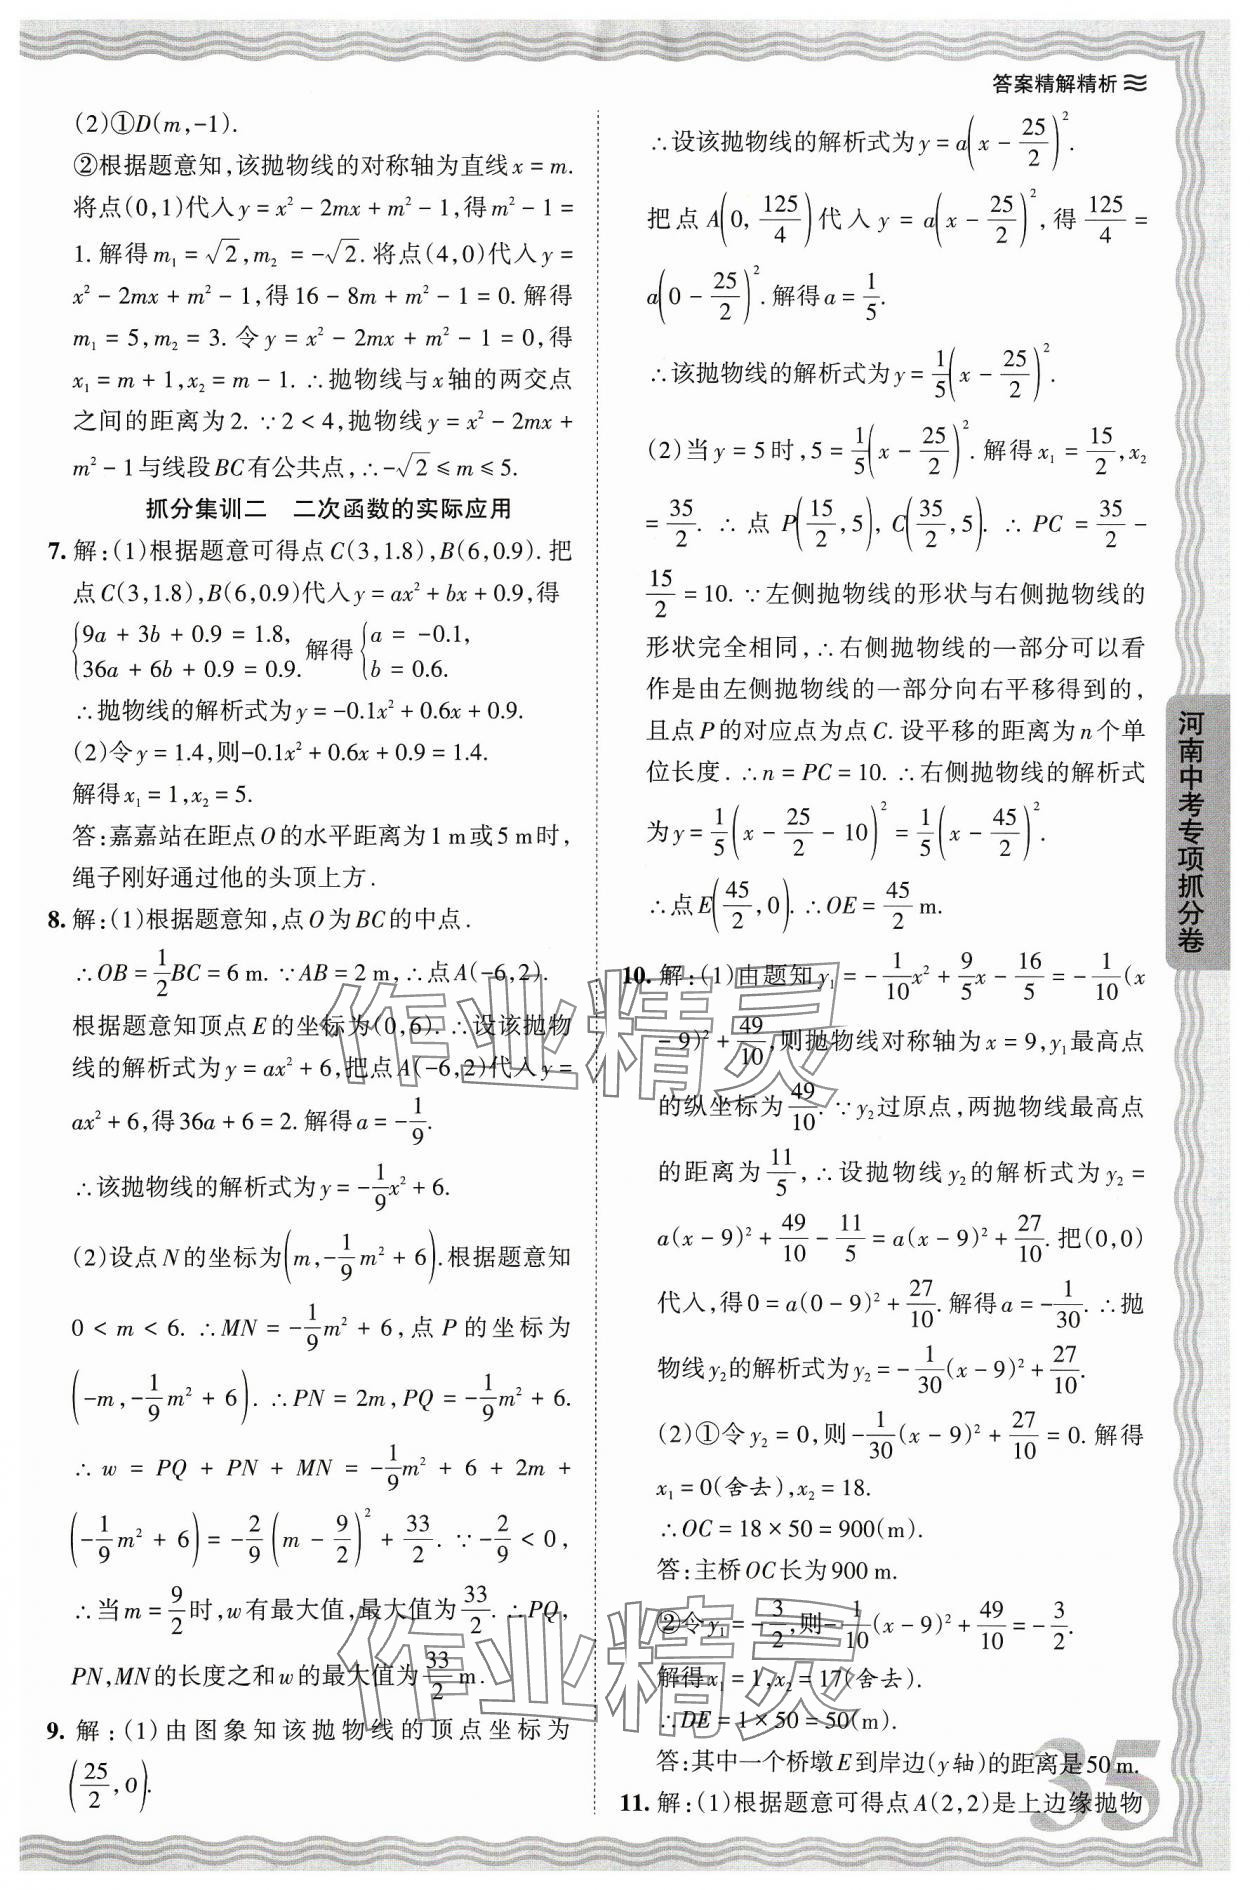 答案精解精析
(2)①D(m,-1).
②根据题意知,该抛物线的对称轴为直线x=m.
将点(0,1)代入y=x²-2mx+m²-1,得m²-1=
1.解得m₁=√2,m₂=-√2.将点(4,0)代入y=
x²-2mx+m²-1,得16-8m+m²-1=0.解得
m₁=5,m₂=3.令y=x²-2mx+m²-1=0,得
x₁=m+1,x₂=m-1.∴抛物线与x轴的两交点
之间的距离为2.∵2<4,抛物线y=x²-2mx+
m²-1与线段BC有公共点,∴-√2≤m≤5.
抓分集训二 二次函数的实际应用
7.解:(1)根据题意可得点C(3,1.8),B(6,0.9).把
点C(3,1.8),B(6,0.9)代入y=ax²+bx+0.9,得
{9a+3b+0.9=1.8, 36a+6b+0.9=0.9. 解得{a=-0.1, b=0.6.
∴抛物线的解析式为y=-0.1x²+0.6x+0.9.
(2)令y=1.4,则-0.1x²+0.6x+0.9=1.4.
解得x₁=1,x₂=5.
答:嘉嘉站在距点O的水平距离为1 m或5 m时,
绳子刚好通过他的头顶上方.
8.解:(1)根据题意知,点O为BC的中点.
∴OB=1/2BC=6 m.∵AB=2 m,∴点A(-6,2).
根据题意知顶点E的坐标为(0,6).∴设该抛物
线的解析式为y=ax²+6,把点A(-6,2)代入y=
ax²+6,得36a+6=2.解得a=-1/9.
∴该抛物线的解析式为y=-1/9x²+6.
(2)设点N的坐标为(m,-1/9m²+6).根据题意知
0<m<6.∴MN=-1/9m²+6,点P的坐标为
(-m,-1/9m²+6).∴PN=2m,PQ=-1/9m²+6.
∴w=PQ+PN+MN=-1/9m²+6+2m+
(-1/9m²+6)=-2/9(m-9/2)²+33/2.∵-2/9<0,
∴当m=9/2时,w有最大值,最大值为33/2.∴PQ,
PN,MN的长度之和w的最大值为33/2 m.
9.解:(1)由图象知该抛物线的顶点坐标为
(25/2,0).
∴设该抛物线的解析式为y=a(x-25/2)².
把点A(0,125/4)代入y=a(x-25/2)²,得125/4=
a(0-25/2)².解得a=1/5.
∴该抛物线的解析式为y=1/5(x-25/2)².
(2)当y=5时,5=1/5(x-25/2)².解得x₁=15/2,x₂
=35/2.∴点P(15/2,5),C(35/2,5).∴PC=35/2-
15/2=10.∵左侧抛物线的形状与右侧抛物线的
形状完全相同,∴右侧抛物线的一部分可以看
作是由左侧抛物线的一部分向右平移得到的,
且点P的对应点为点C.设平移的距离为n个单
位长度.∴n=PC=10.∴右侧抛物线的解析式
为y=1/5(x-25/2-10)²=1/5(x-45/2)².
∴点E(45/2,0).∴OE=45/2 m.
10.解:(1)由题知y₁=-1/10x²+9/5x-16/5=-1/10(x
-9)²+49/10,则抛物线对称轴为x=9,y₁最高点
的纵坐标为49/10.∵y₂过原点,两抛物线最高点
的距离为11/5,∴设抛物线y₂的解析式为y₂=
a(x-9)²+49/10-11/5=a(x-9)²+27/10.把(0,0)
代入,得0=a(0-9)²+27/10.解得a=-1/30.∴抛
物线y₂的解析式为y₂=-1/30(x-9)²+27/10.
(2)①令y₂=0,则-1/30(x-9)²+27/10=0.解得
x₁=0(舍去),x₂=18.
∴OC=18×50=900(m).
答:主桥OC长为900 m.
②令y₁=-3/2,则-1/10(x-9)²+49/10=-3/2.
解得x₁=1,x₂=17(舍去).
∴DE=1×50=50(m).
答:其中一个桥墩E到岸边(y轴)的距离是50 m.
11.解:(1)根据题意可得点A(2,2)是上边缘抛物
河南中考专项抓分卷
35
作业精灵
作业精灵